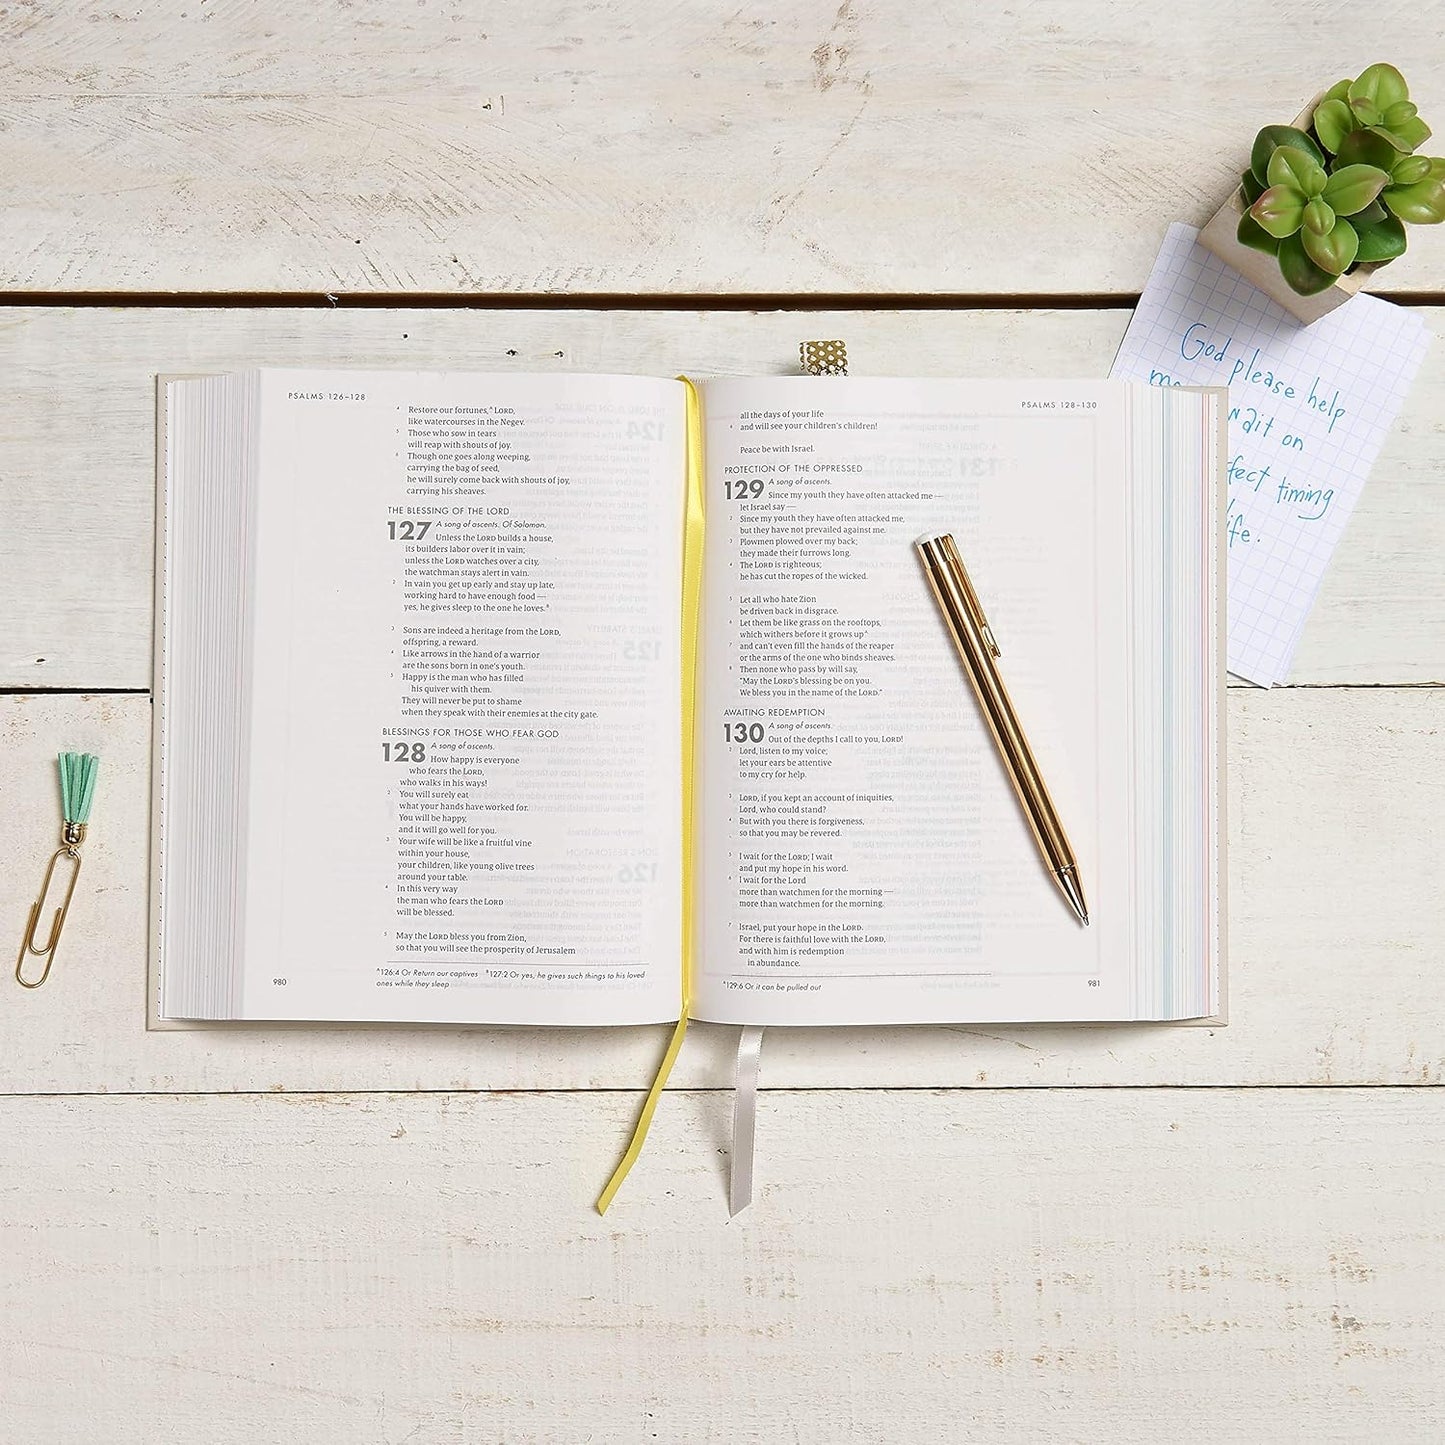 PSALMS 126–128
4 Restore our fortunes,A LORD,
like watercourses in the Negev.
5 Those who sow in tears
will reap with shouts of joy.
6 Though one goes along weeping,
carrying the bag of seed,
he will surely come back with shouts of joy,
carrying his sheaves.
THE BLESSING OF THE LORD
127 A song of ascents. Of Solomon.
Unless the LORD builds a house,
its builders labor over it in vain;
unless the LORD watches over a city,
the watchman stays alert in vain.
2 In vain you get up early and stay up late,
working hard to have enough food —
yes, he gives sleep to the one he loves.B
3 Sons are indeed a heritage from the LORD,
offspring, a reward.
4 Like arrows in the hand of a warrior
are the sons born in one's youth.
5 Happy is the man who has filled
his quiver with them.
They will never be put to shame
when they speak with their enemies at the city gate.
BLESSINGS FOR THOSE WHO FEAR GOD
128 A song of ascents.
How happy is everyone
who fears the LORD,
who walks in his ways!
2 You will surely eat
what your hands have worked for.
You will be happy,
and it will go well for you.
3 Your wife will be like a fruitful vine
within your house,
your children, like young olive trees
around your table.
4 In this very way
the man who fears the LORD
will be blessed.
5 May the LORD bless you from Zion,
so that you will see the prosperity of Jerusalem
A126:4 Or Return our captives B127:2 Or yes, he gives such things to his loved
ones while they sleep
980
PSALMS 128–130
all the days of your life
6 and will see your children's children!
Peace be with Israel.
PROTECTION OF THE OPPRESSED
129 A song of ascents.
Since my youth they have often attacked me —
let Israel say —
2 Since my youth they have often attacked me,
but they have not prevailed against me.
3 Plowmen plowed over my back;
they made their furrows long.
4 The LORD is righteous;
he has cut the ropes of the wicked.
5 Let all who hate Zion
be driven back in disgrace.
6 Let them be like grass on the rooftops,
which withers before it grows upA
7 and can't even fill the hands of the reaper
or the arms of the one who binds sheaves.
8 Then none who pass by will say,
"May the LORD's blessing be on you.
We bless you in the name of the LORD."
AWAITING REDEMPTION
130 A song of ascents.
Out of the depths I call to you, LORD!
2 Lord, listen to my voice;
let your ears be attentive
to my cry for help.
3 LORD, if you kept an account of iniquities,
Lord, who could stand?
4 But with you there is forgiveness,
so that you may be revered.
5 I wait for the LORD; I wait
and put my hope in his word.
6 I wait for the Lord
more than watchmen for the morning —
more than watchmen for the morning.
7 Israel, put your hope in the LORD.
For there is faithful love with the LORD,
and with him is redemption
in abundance.
A129:6 Or it can be pulled out
981
God please help
wait on
timing